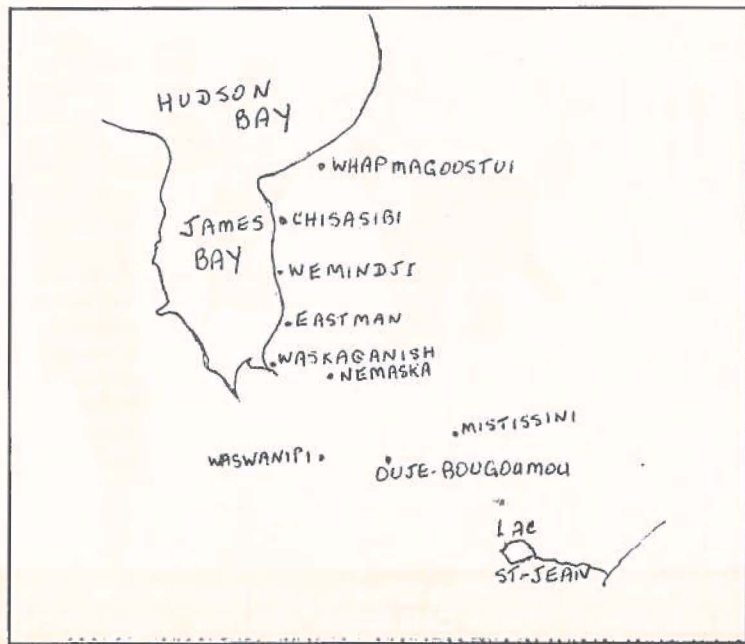 HUDSON
BAY
WHAPMAGOOSTUI
JAMES
BAY
CHISASIBI
WEMINDJI
EASTMAN
WASKAGANISH
NEMASKA
MISTISSINI
WASWANIPI
OUJE-BOUGOUMOU
LAC
ST-JEAN